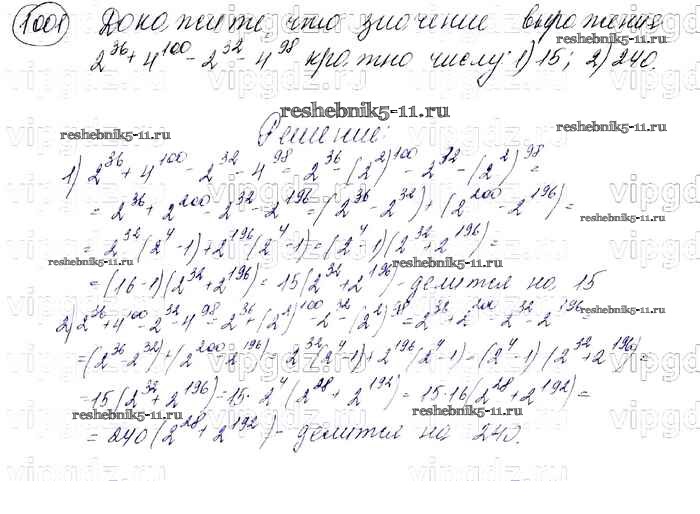 1001) Докажите, что значение выражения
2^36 + 4^100 - 2^32 - 4^98 кратно числу: 1) 15; 2) 240.
reshebnik5-11.ru
Решение:
reshebnik5-11.ru
1) 2^36 + 4^100 - 2^32 - 4^98 = 2^36 - (2^2)^100 - 2^32 - (2^2)^98 =
= 2^36 + 2^200 - 2^32 - 2^196 = (2^36 - 2^32) + (2^200 - 2^196) =
= 2^32 (2^4 - 1) + 2^196 (2^4 - 1) = (2^4 - 1)(2^32 + 2^196) =
= (16 - 1)(2^32 + 2^196) = 15 (2^32 + 2^196) - делится на 15
2) 2^36 + 4^100 - 2^32 - 4^98 = 2^36 + (2^2)^100 - 2^32 - (2^2)^98 = 2^36 + 2^200 - 2^32 - 2^196 =
= (2^36 - 2^32) + (2^200 - 2^196) = 2^32 (2^4 - 1) + 2^196 (2^4 - 1) = (2^4 - 1)(2^32 + 2^196) =
= 15 (2^32 + 2^196) = 15 · 2^4 (2^28 + 2^192) = 15 · 16 (2^28 + 2^192) =
= 240 (2^28 + 2^192) - делится на 240.